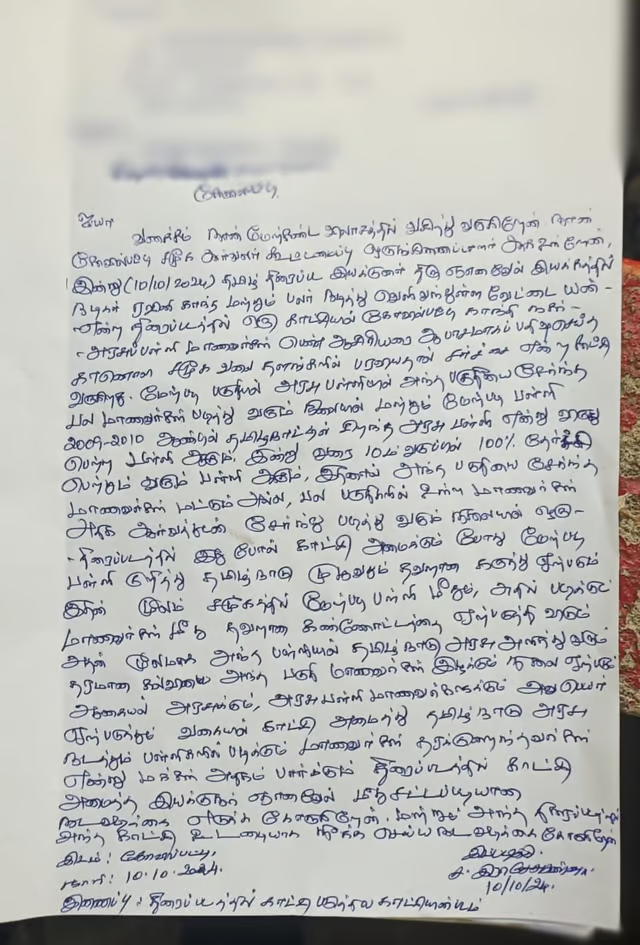 கோவில்பட்டி.
ஐயா
வணக்கம் நான் மேற்கண்ட விலாசத்தில் வசித்து வருகிறேன் நான்
கோவில்பட்டி சமூக ஆர்வலர் கூட்டமைப்பு ஒருங்கிணைப்பாளர் ஆக உள்ளேன்,
இன்று (10/10/2024) தமிழ் திரைப்பட இயக்குனர் திரு ஞானவேல் இயக்கத்தில்
நடிகர் ரஜினி காந்த மற்றும் பலர் நடித்து வெளிவந்துள்ள வேட்டையன்-
-என்ற திரைப்படத்தில் ஒரு காட்சியில் கோவில்பட்டி காந்தி நகர்-
-அரசுப்பள்ளி மாணவர்கள் பெண் ஆசிரியரை ஆபாசமாகப்
காணொளி சமூக வலை தளங்களில் பரவியதால் சர்ச்சை
வருகிறது. மேற்படி பகுதியில் அரசு பள்ளியில் அந்த பகுதியை சேர்ந்த
பல மாணவர்கள் படித்து வரும் நிலையில் மற்றும் மேற்படி பள்ளி
2009-2010 ஆண்டில் தமிழ்நாட்டின் சிறந்த அரசு பள்ளி என்று விருது
பெற்ற பள்ளி ஆகும். இன்று வரை 10ம் வகுப்பில் 100% தேர்ச்சி
பெற்றும் வரும் பள்ளி ஆகும், இதனால் அந்த பகுதியை சேர்ந்த
மாணவர்கள் மட்டும் அல்ல, பல பகுதிகளில் உள்ள மாணவர்கள்
அதிக ஆர்வத்துடன் சேர்ந்து படித்து வரும் நிலையில் ஒரு-
-திரைப்படத்தில் இது போல் காட்சி அமைக்கும் போது மேற்படி
பள்ளி குறித்து தமிழ்நாடு முழுவதும் தவறான கருத்து ஏற்படும்
இதன் மூலம் சமூகத்தில் மேற்படி பள்ளி மீதும், அதில் படிக்கும்
மாணவர்கள் மீது தவறான கண்ணோட்டத்தை ஏற்படுத்தி விடும்
அதன் மூலமாக அந்த பள்ளியில் தமிழ்நாடு அரசு அளித்து வரும்
தரமான கல்வியை அந்த பகுதி மாணவர்கள் இழக்கும் நிலை ஏற்படும்
ஆகையால் அரசுக்கும், அரசு பள்ளி மாணவர்களுக்கும் அவபெயர்
ஏற்படுத்தும் வகையில் காட்சி அமைத்து தமிழ்நாடு அரசு
நடத்தும் பள்ளிகளில் படிக்கும் மாணவர்கள் தரக்குறைந்தவர்கள்
என்று மக்கள் அதிகம் பார்க்கும் திரைப்படத்தில் காட்சி
அமைத்த இயக்குநர் ஞானவேல் மீது சட்டப்படியான
நடவடிக்கை எடுக்க கோருகிறேன். மற்றும் அந்த திரைப்படத்தில்
அந்த காட்சி உடனடியாக நீக்க செய்ய நடவடிக்கை கோரினேன்
இடம்: கோவில்பட்டி,
இப்படிக்கு
நாள்: 10.10.2024.
10/10/24.
இணைப்பு: திரைப்படத்தில் காட்சி